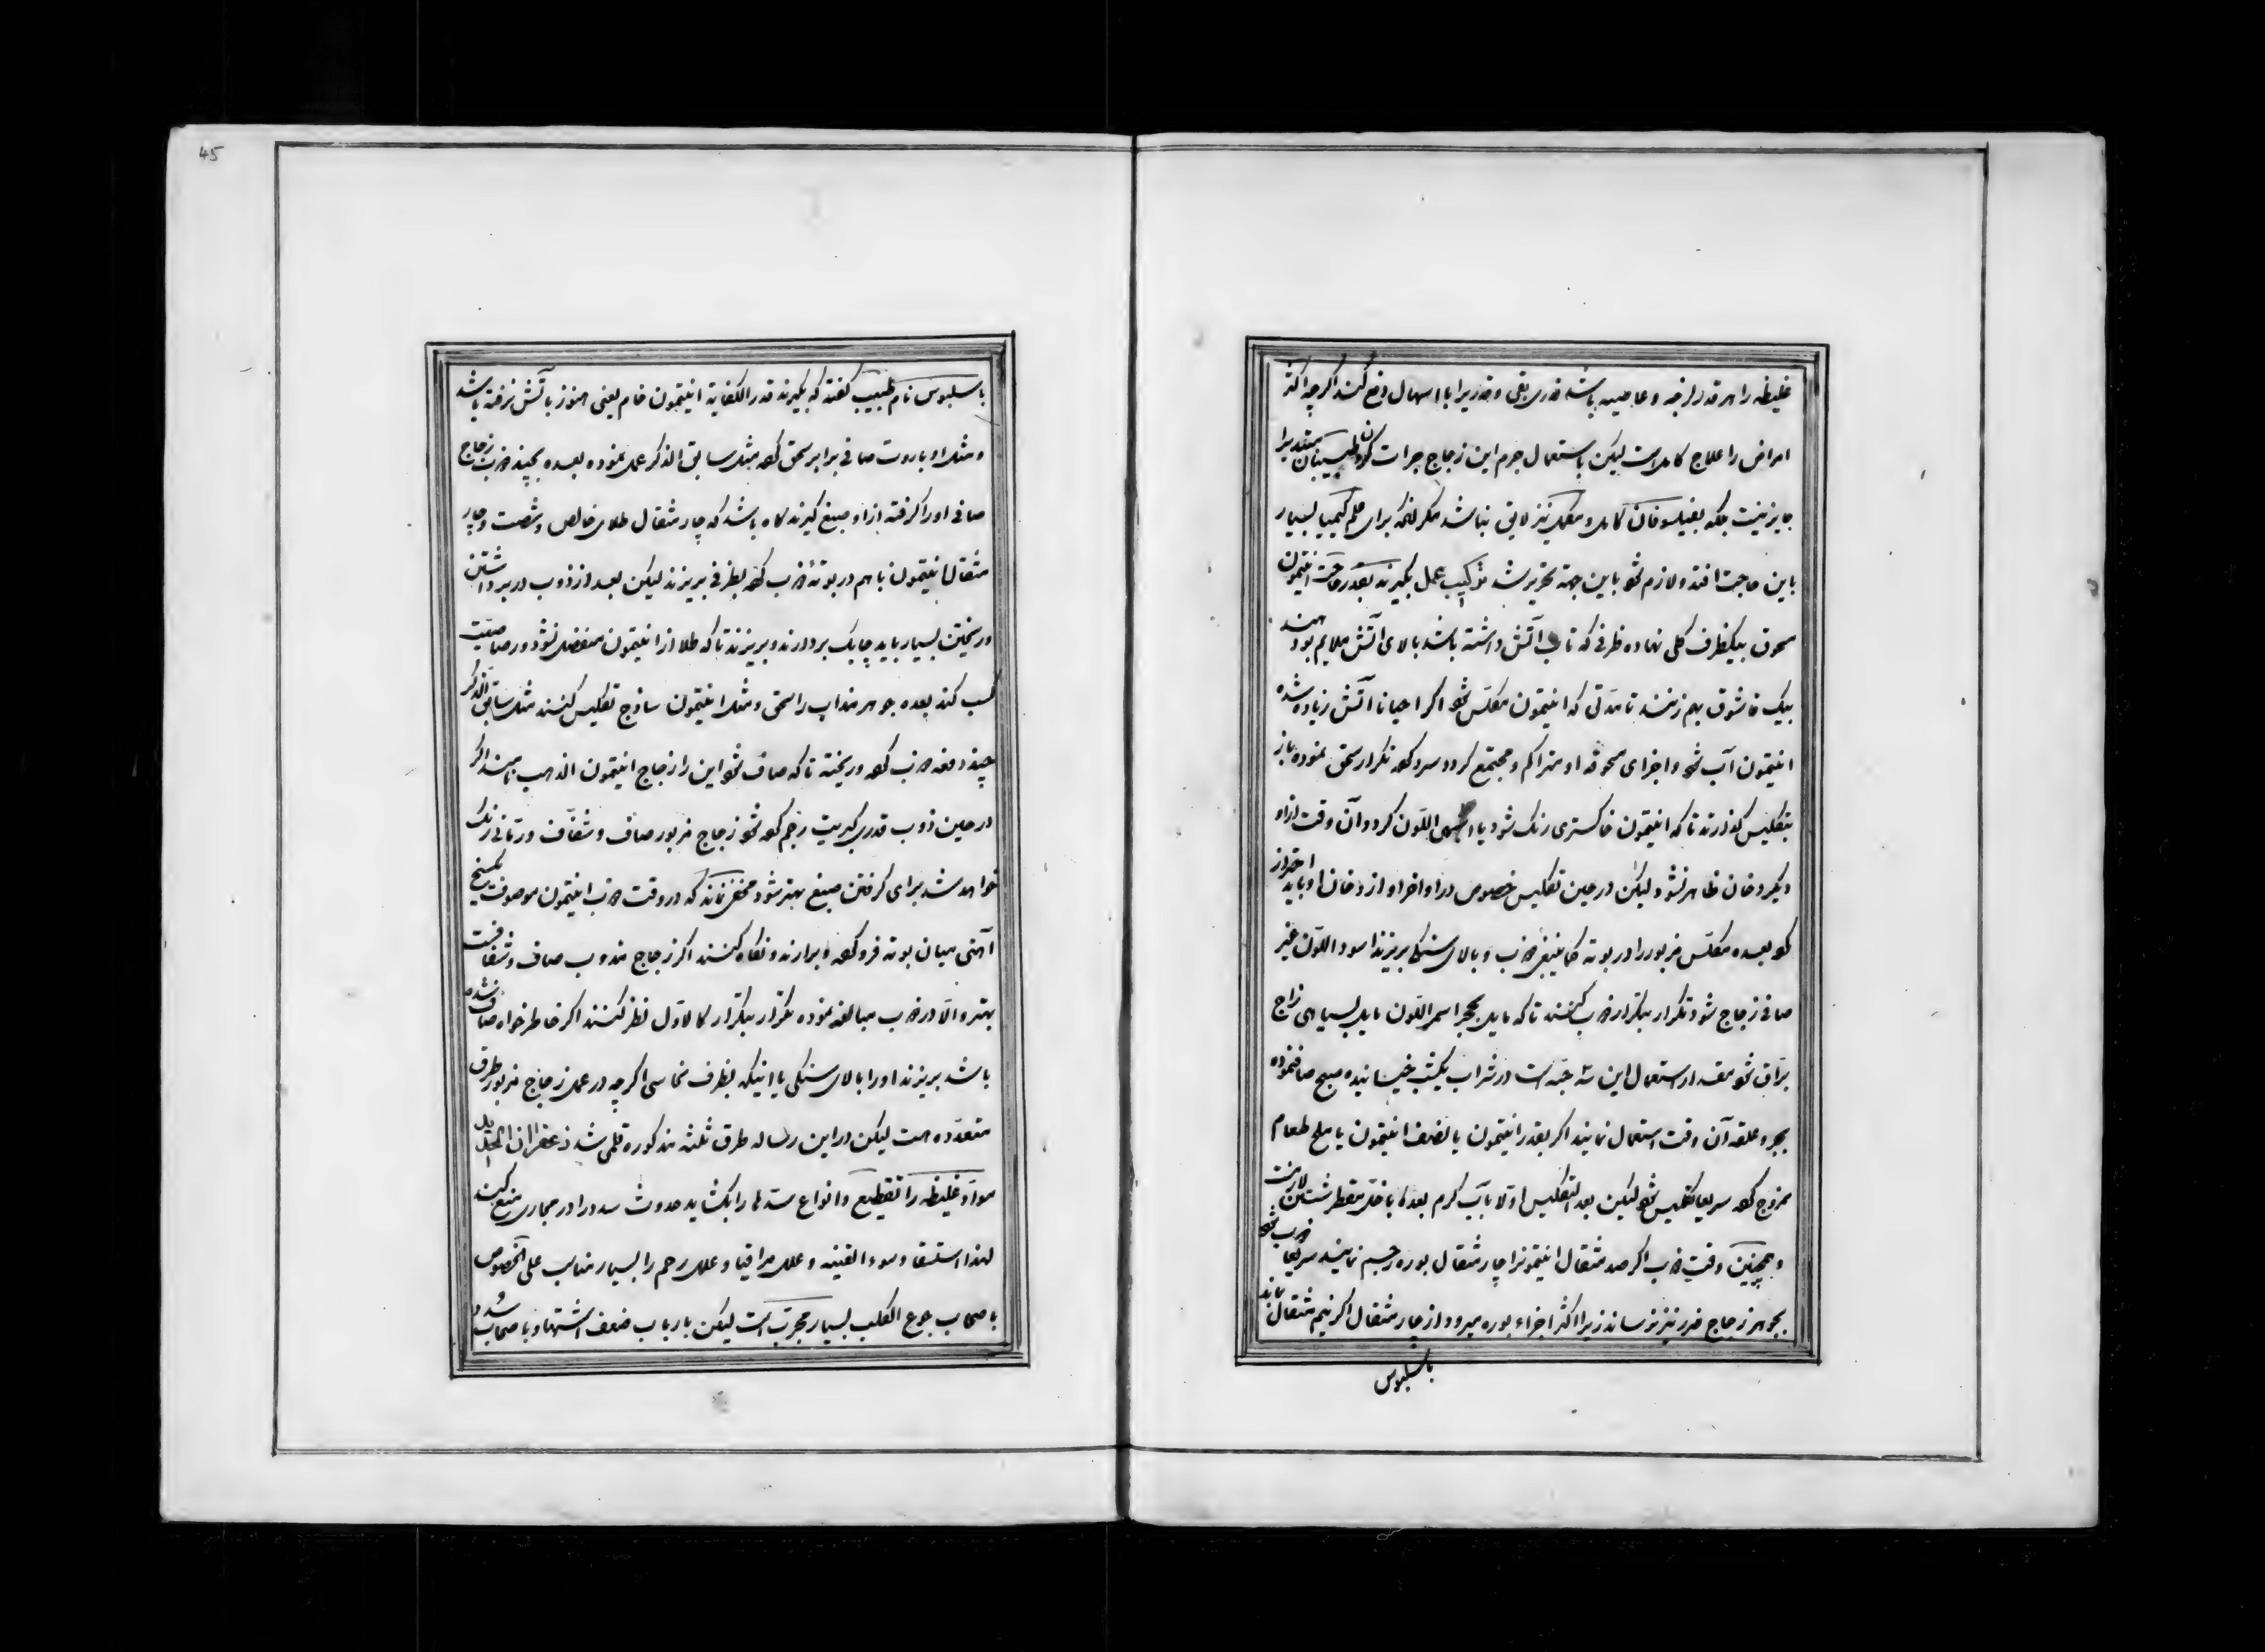 غلیظه را هر قدر لزجه و عاصیه باشد قدری بقی و قدریرا با اسهال دفع کند اکرچه اکثر
امراض را علاج کامل است لیکن باستعمال جرم این زجاج جرات کردن طبیبان مبتدیرا
جایز نیست بلکه بفیلسوفان کامل و مکمل نیز لایق نباشد مکر انکه برای علم کیمیا بسیار
باین حاجت افتد و لازم شود باین جهة تحریر شد ترکیب عمل بکیرند بقدر حاجت انتیمون
مسحوق بیکظرف کلی نهاده ظرفی که تاب آتش داشته باشد بالای آتش ملایم بود
بیک قاشوق بهم زنند تا مدتی که انتیمون مکلس شود اکر احیانا آتش زیاده شده
انتیمون آب شود و اجزای مسحوقه او متراکم و مجتمع کردد سرد کرده تکرار سحق نموده باز
بتکلیس کذارند تا که انتیمون خاکستری رنک شود یا اللون کردد آن وقت ازاو
دیکر دخان ظاهر نشود لیکن در حین تکلیس خصوص در اواخر او از دخان او باید احتراز
کرد بعده مکلس مزبور را در بوته کما ینبغی ذوب و بالای سنکی بریزند اسود اللون غیر
صافی زجاج شود تکرار بتکرار ذوب کنند تا که مایل بحجر اسمر اللون مایل بسیاهی زجاج
براق شود مقدار استعمال این سه حبه است در شراب یکشب خیسانیده صبح صاف نموده
بجرعه آن وقت استعمال نمایند اکر بقدر انتیمون یا نصف انتیمون با ملح طعام
ممزوج کرده سریعا تکلیس شود لیکن بعد التکلیس اولا بآب کرم بعده با خل مقطر شستن لازمست
و همچنین وقت ذوب اکر صد مثقال انتیمونرا چار مثقال بوره رجیم نمایند سریعا ذوب شود
بجوهر زجاج ضرر نیز نرساند زیرا اکثر اجزاء بوره میرود از چار مثقال اکر نیم مثقال ماند
باسلیوس
45
باسلیوس نام طبیب کفته که بکیرند قدر الکفایة انتیمون خام یعنی هنوز بآتش نرفته باشد
و مثل او باروت صافی برابر سحق کرده مثل سابق الذکر عمل نموده بعده بچند ذوب زجاج
صافی اورا کرفته ازاو صبغ کیرند کاه باشد که چار مثقال طلای خالص و شصت و چار
مثقال انتیمون باهم در بوته ذوب کرده بظرفی بریزند لیکن بعد از ذوب در برداشتن
و ریختن بسیار باید چابک بردارند و بریزند تا که طلا از انتیمون منفصل نشود و رصاصیت
کسب کند بعده جوهر مذاب را سحق و مثل انتیمون ساذج تکلیس کنند مثل سابق الذکر
چند دفعه ذوب کرده و ریخته تا که صاف شود این را زجاج انتیمون الذهب نامند اکر
در حین ذوب قدری کبریت رجم کرده شود زجاج مزبور صاف و شفاف و رمانی رنک
خواهد شد برای کرفتن صبغ بهتر شود مخفی نماند که در وقت ذوب انتیمون موصوف بمیخ
آهنی میان بوته فرو کرده و برارند و نکاه کنند اکر زجاج مذوب صاف و شفافست
بهتر و الا در ذوب مبالغه نموده تکرار بتکرار کالاول نظر کنند اکر خاطرخواه صاف شده
باشد بریزند اورا بالای سنکی یا اینکه بظرف نحاسی اکرچه در عمل زجاج مزبور طرق
متعدده هست لیکن در این رساله طرق ثلثه مذکوره قلمی شد زعفران الحدید
مواد غلیظه را تقطیع و انواع سدها را بکشاید حدوث سدد را در مجاری منع کند
لهذا استسقا و سوء القنیه و علل مراقیا و علل رحم را بسیار مناسب علی الخصوص
باصحاب جوع الکلب بسیار مجرب است لیکن بارباب ضعف اشتها و باصحاب سدد